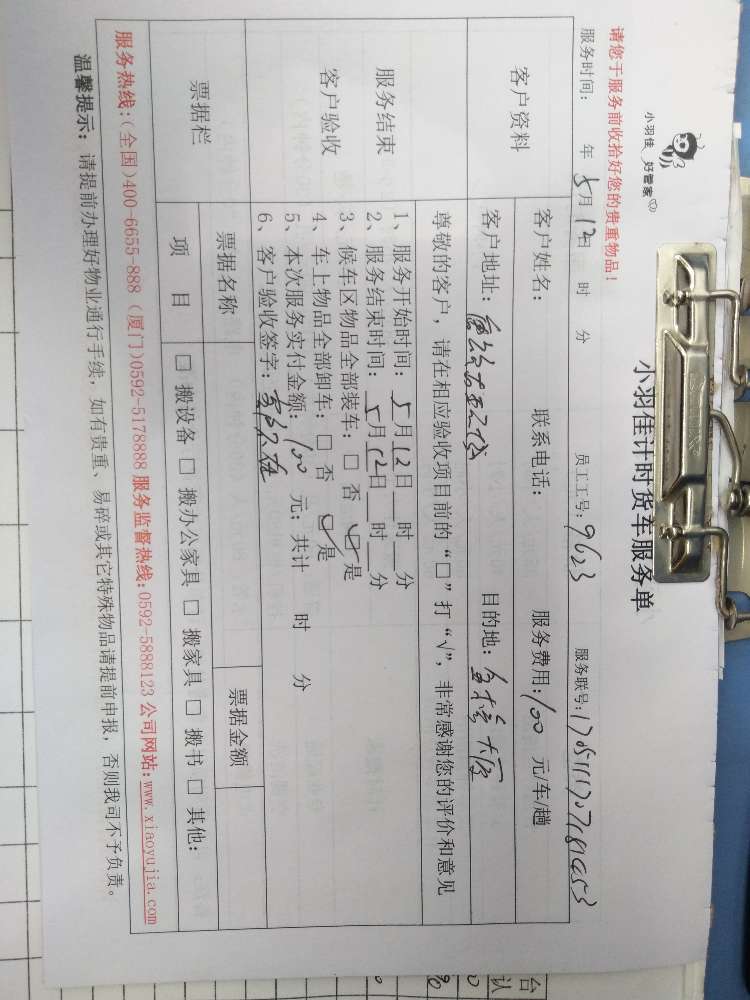 小羽佳 好管家
小羽佳计时货车服务单
请您于服务前收拾好您的贵重物品!
服务时间: 年 5月12日 时 分 员工工号:9623 服务联号:
客户资料
客户姓名: 联系电话: 服务费用:100 元/车/趟
客户地址: 目的地: 大厦
尊敬的客户,请在相应验收项目前的“□”打“√”,非常感谢您的评价和意见
服务结束
客户验收
1、服务开始时间: 5月12日 时 分
2、服务结束时间: 5月12日 时 分
3、候车区物品全部装车: □ 否 ☑是
4、车上物品全部卸车: □ 否 ☑是
5、本次服务实付金额: 100 元; 共计 时 分
6、客户验收签字:
票据栏
票据名称 票据金额
项 目 □ 搬设备 □ 搬办公家具 □ 搬家具 □ 搬书 □ 其他:
服务热线:(全国)400-6655-888 (厦门)0592-5178888 服务监督热线:0592-5888123 公司网站:www.xiaoyujia.com
温馨提示: 请提前办理好物业通行手续, 如有贵重、易碎或其它特殊物品请提前申报, 否则我司不予负责。
台
认